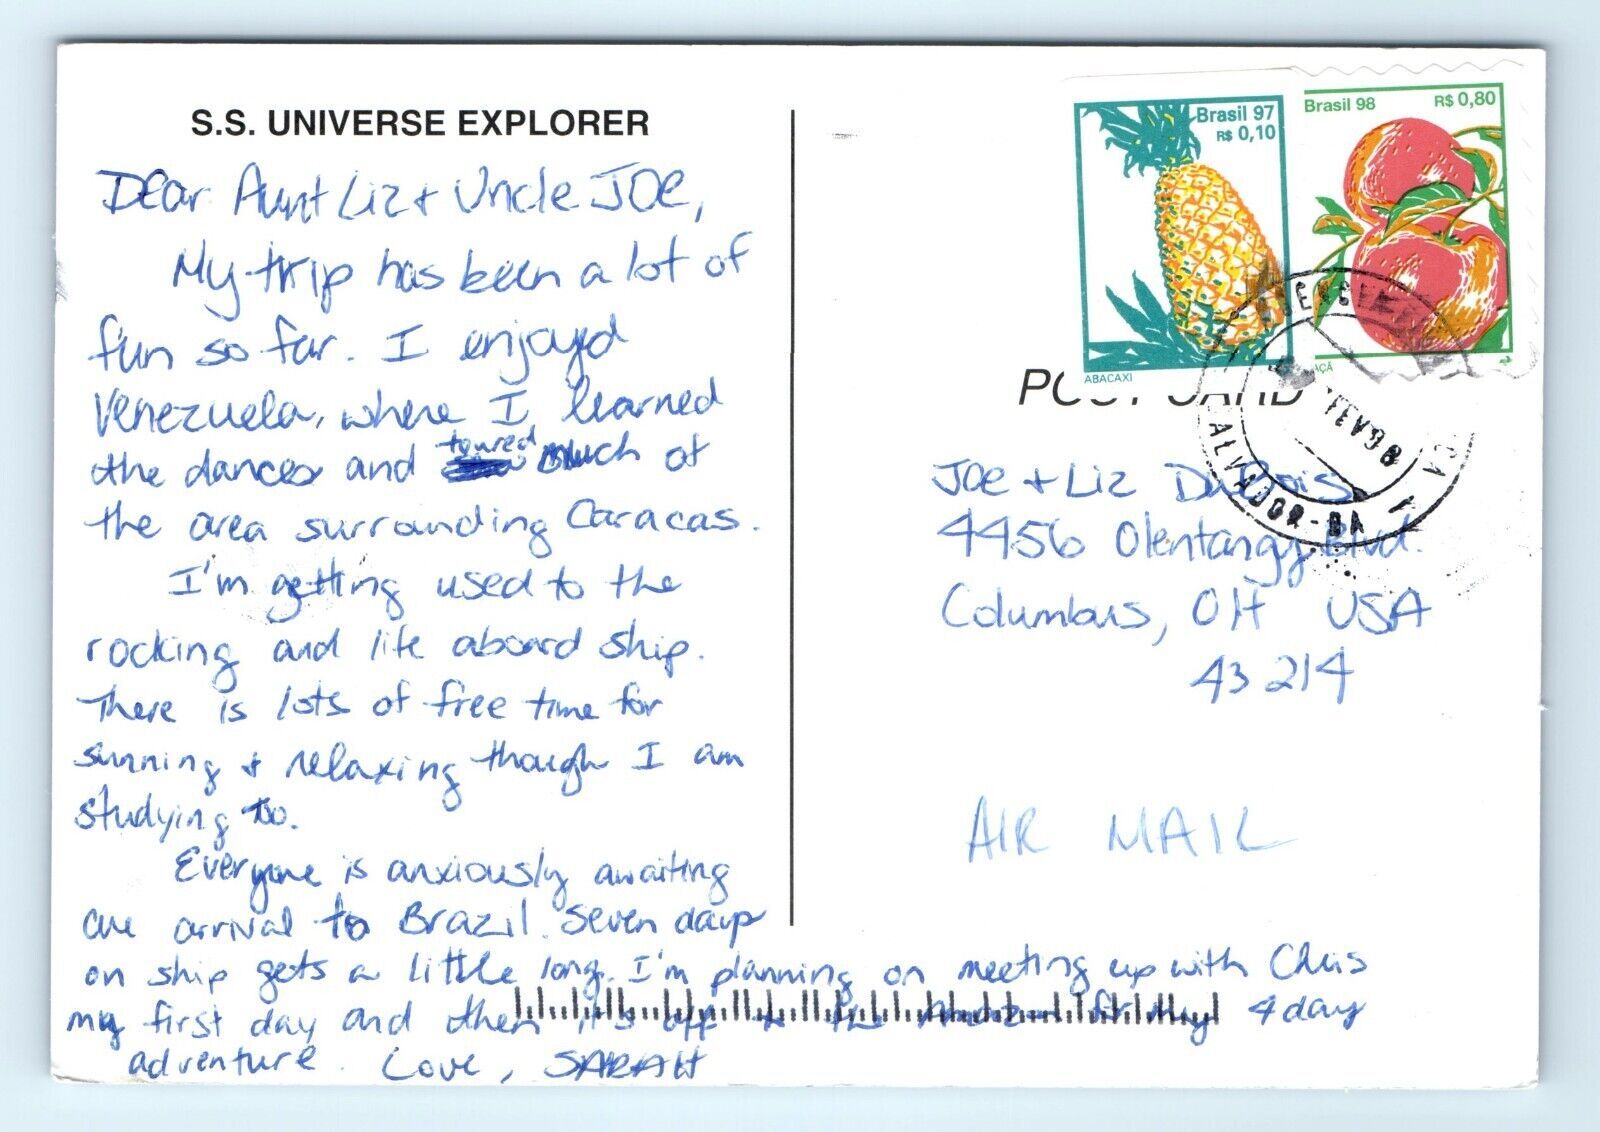 S.S. UNIVERSE EXPLORER
Dear Aunt Liz + Uncle JOE,
My trip has been a lot of
fun so far. I enjoyed
Venezuela, where I learned
the dances and toured much of
the area surrounding Caracas.
I'm getting used to the
rocking and life aboard ship.
There is lots of free time for
sunning + relaxing though I am
studying too.
Everyone is anxiously awaiting
are arrival to Brazil. Seven days
on ship gets a little long. I'm planning on meeting up with Chris
my first day and then it's off to the Amazon for my 4 day
adventure. Love, SARAH
Brasil 97
R$ 0,10
ABACAXI
Brasil 98
R$ 0,80
AÇÃ
POST CARD
SALVADOR-BA
Joe + Liz DuBois
4456 Olentangy Blvd.
Columbus, OH USA
43214
AIR MAIL